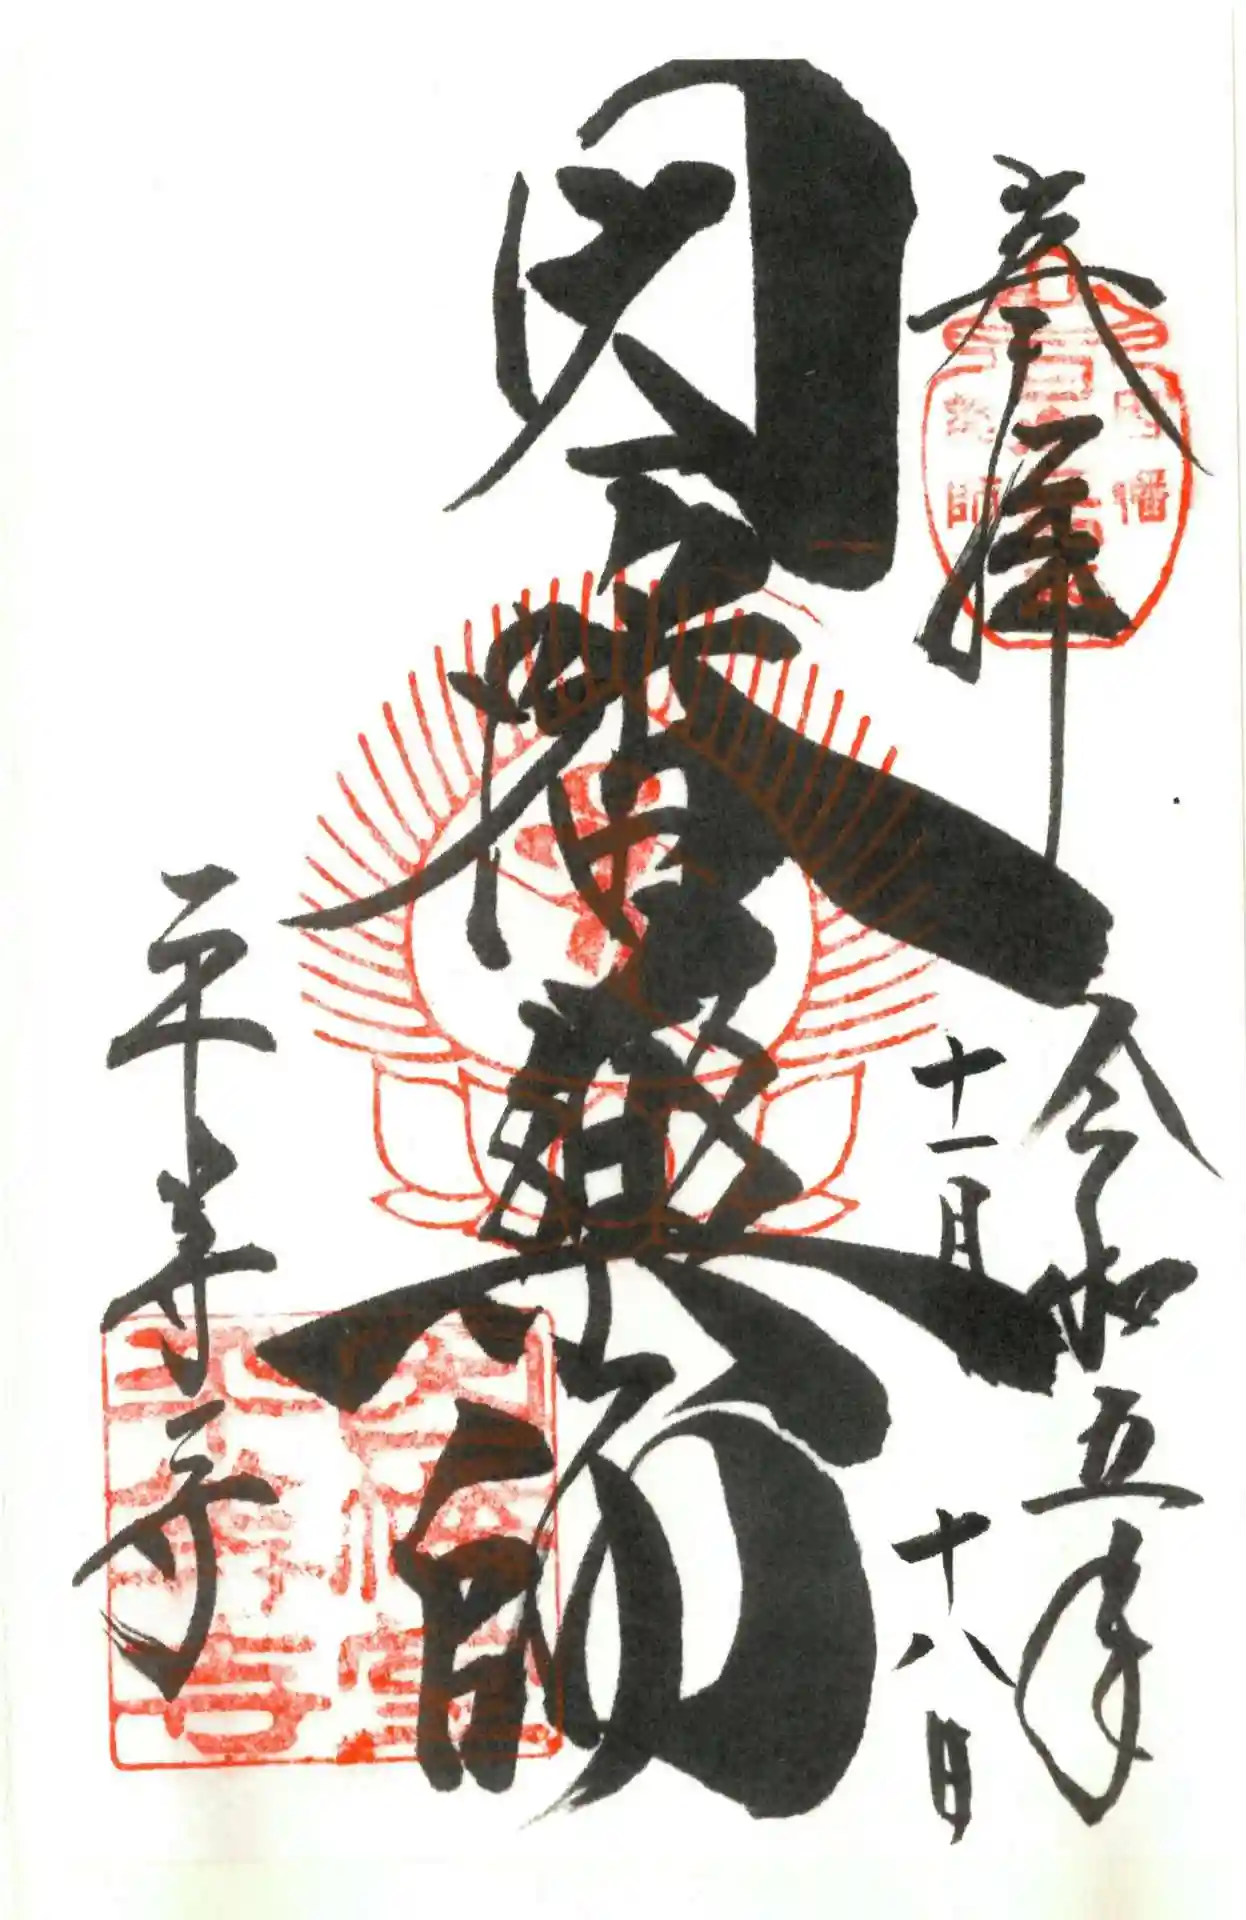 奉拝
因幡
薬師
令和五年
十一月十八日
因幡薬師
平等寺
平等寺